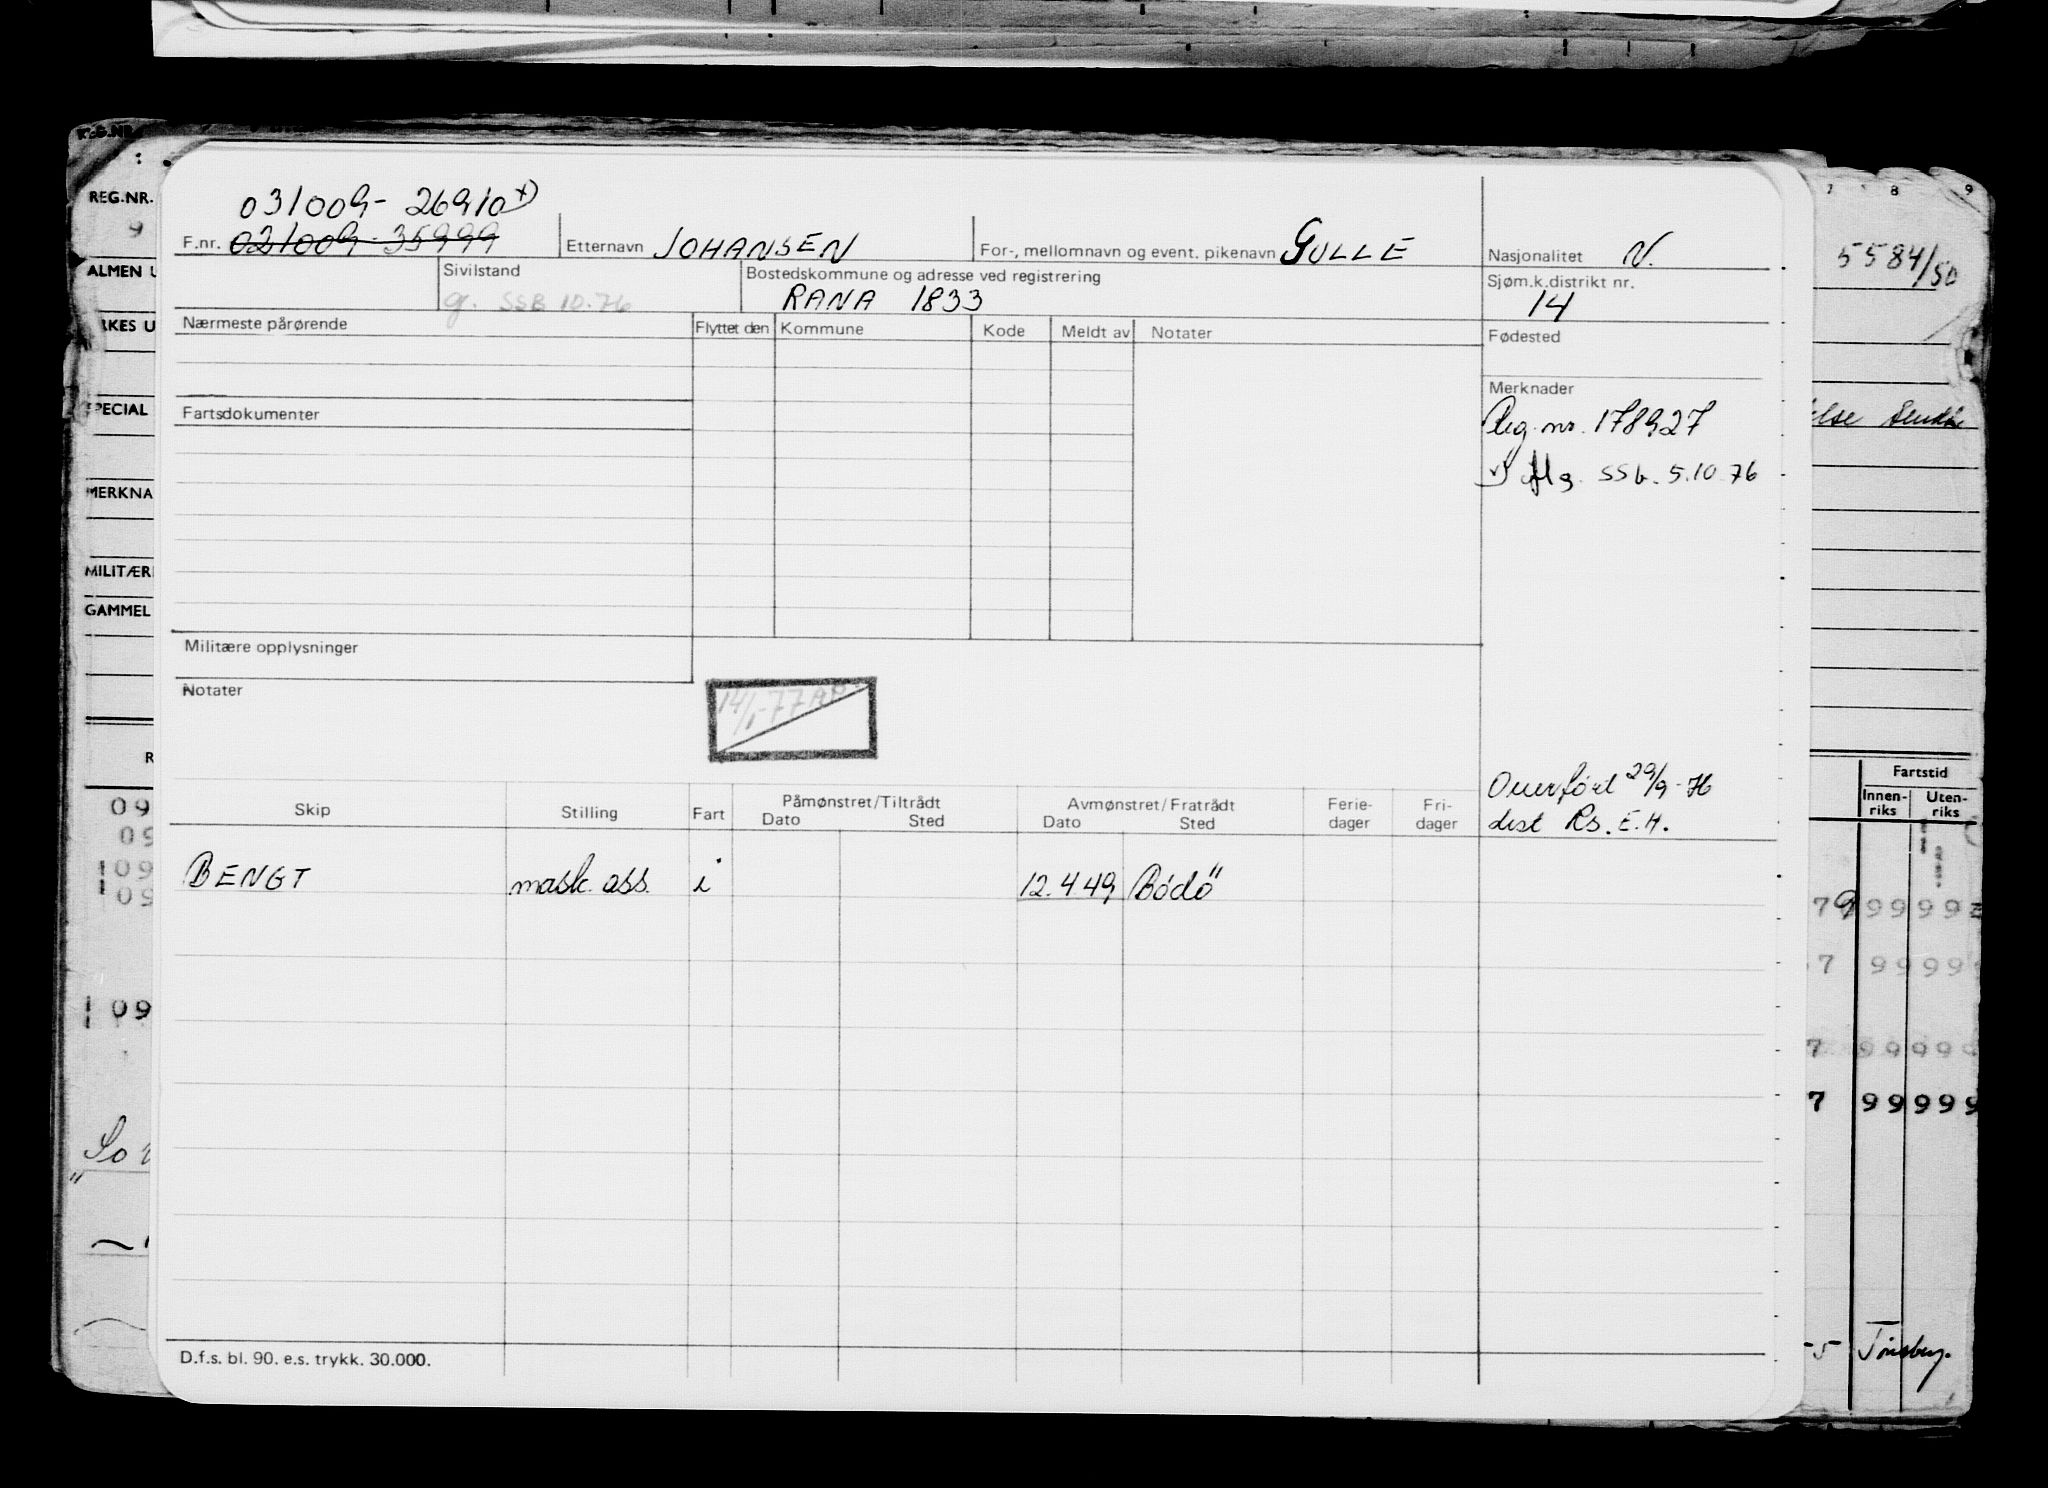 031009- 26910 x)
F.nr. 021009-35999 Etternavn JOHANSEN For-, mellomnavn og event. pikenavn GULLE Nasjonalitet N.
Sivilstand Bostedskommune og adresse ved registrering Sjøm.k.distrikt nr.
g. SSB 10.76 RANA 1833 14
Nærmeste pårørende Flyttet den Kommune Kode Meldt av Notater Fødested
Merknader
Fartsdokumenter
Reg.nr. 178927
x) flg. SSb. 5.10.76
Militære opplysninger
Notater
14/1-77
Overført 29/9-76
dist Rs. E.H.
Skip Stilling Fart Påmønstret/Tiltrådt Avmønstret/Fratrådt Ferie- Fri-
Dato Sted Dato Sted dager dager
BENGT mask. ass. i 12.4.49 Bodö
D.f.s. bl. 90. e.s. trykk. 30.000.
REG.NR.
9
ALMEN U
RKES U
PECIAL
MERKNA
MILITÆR
GAMMEL
R
09
09
109
09
109
7 8 9
5584/50
Fartstid
Innen-riks Uten-riks
79 99 99
7 99 99
7 99 999
7 99 999
-5 Tönsberg.